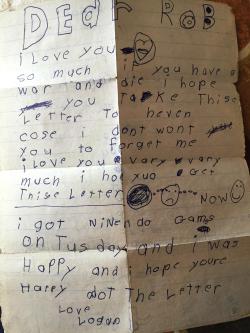 DEAr ROB
i Love you
so much if you have a
war and die i hope
you take Thise
Letter To heven
cose i dont wont
you to forget me
i Love you vary vary
much i hope you Get
Thise Letter NOW
i got NiNendo Game
on Tusday and i was
Happy and i hope youre
Happy Got The Letter
Love
Logan